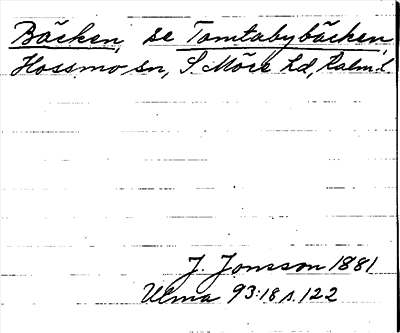 Bäcken, se Tomtabybäcken,
Hossmo sn, S. Möre hd, Kalm. l.
J. Jonsson 1881
Ulma 93:18 s. 122